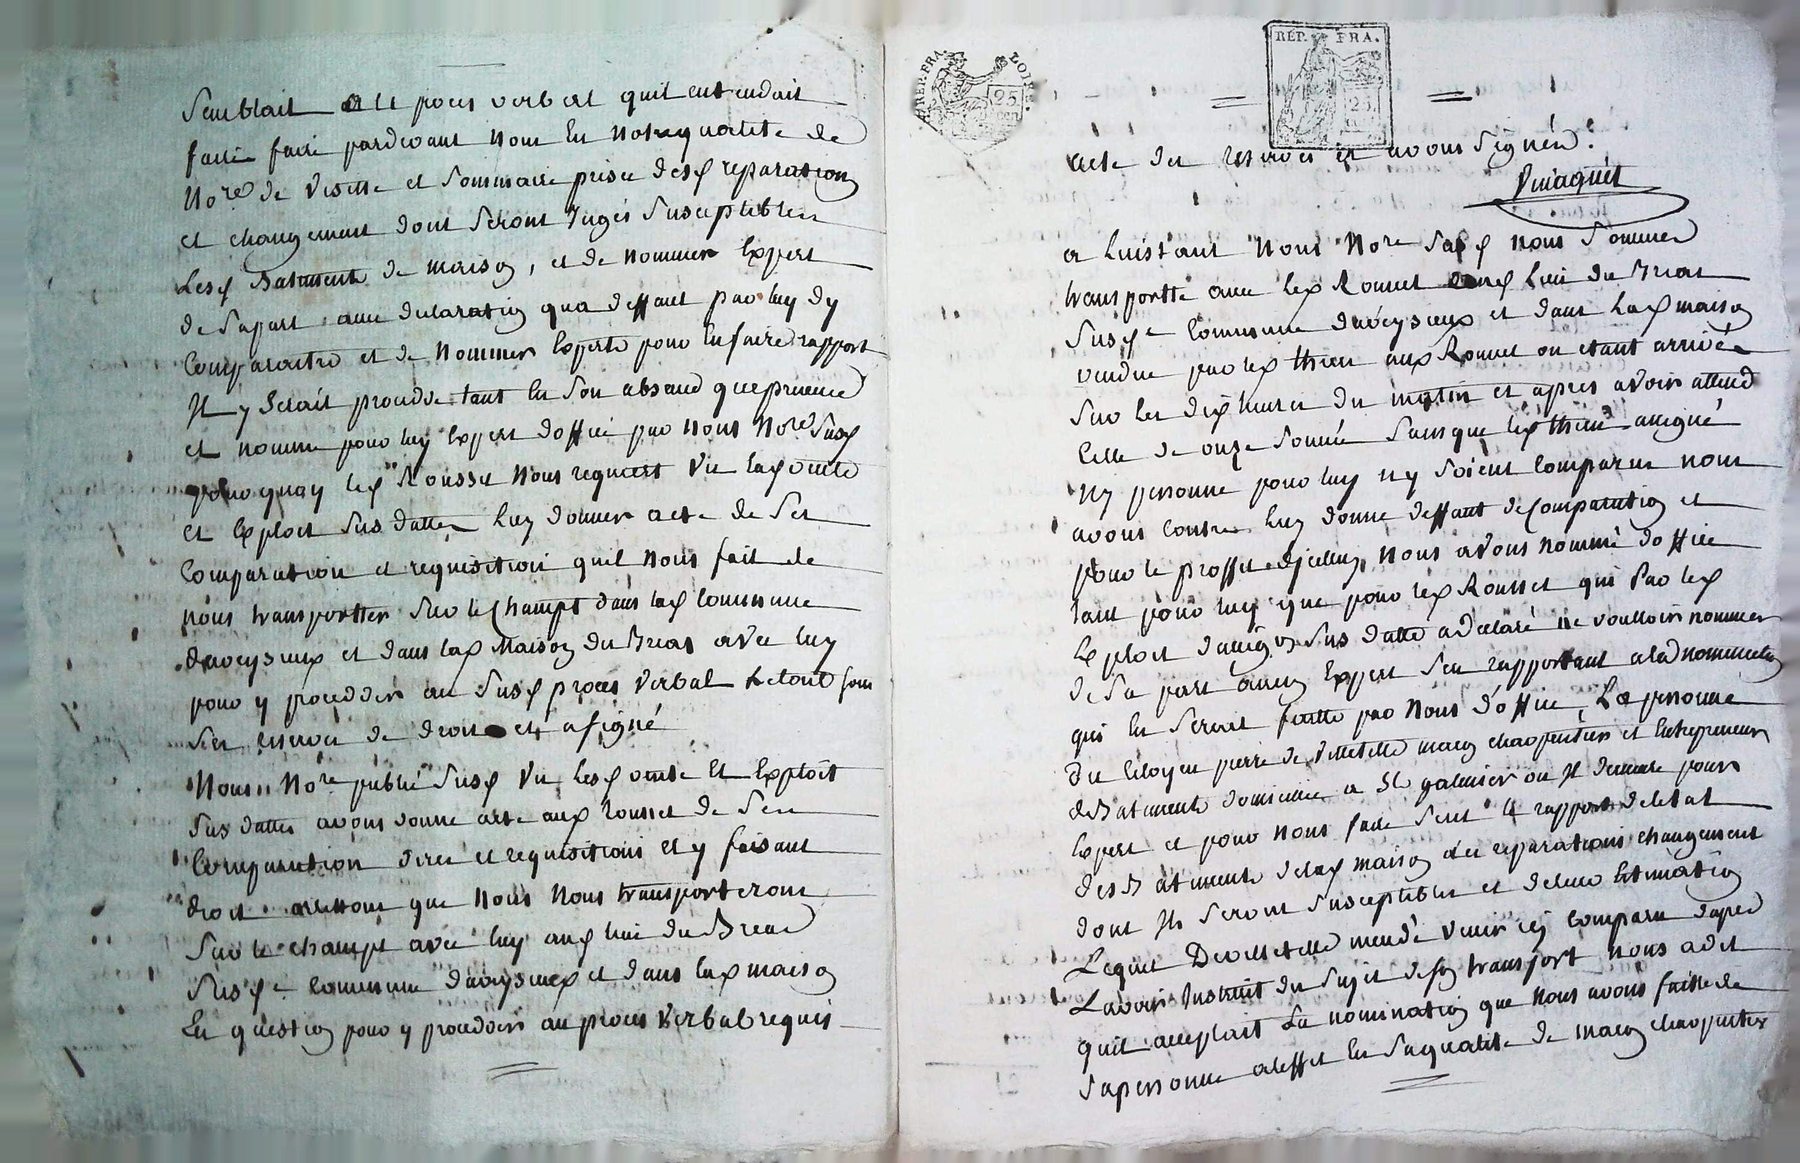 Semblait et le proces verbal quil entendait
faire faire pardevant nous en notre qualité de
Nore de visitte et sommaire prisée des reparation
et changement dont seront jugés susceptibles
Les Batiments de maison, et de nommer Expert
de sapart avec declaration qua deffaut par luy dy
Comparoitre et de nommer Experts pour en faire rapport
Il y serait proceddé tant en son absence que presence
et nommé pour luy Expert doffice par nous Nore sus
pourquoy le Rousset nous requiert vu la
et Exploit sus datter luy donner acte de ses
Comparution et requisition quil nous fait de
nous transportter sur le Champt dans la Commune
daveyzieux et dans la Maison du Brias avec luy
pour y procedder au sus proces verbal Le tout sous
ses reserves de droit et a signé
Nous Nore public sus vu les et Exploit
sus dattes avons donné acte aux rousset de ses
Comparution dires et requisitions et y faisant
droit arettons que nous nous transporterons
sur le champt avec luy au lieu du Brias
sus Commune daveyzieux et dans la maison
En question pour y procedder au proces verbal requis
REP. FRA. LOIRE.
25
REP. FRA.
25
acte des reserves et avons signéé.
a Linstant nous Nore sus nous sommes
transportté avec le Rousset au lieu du Brias
sus Commune daveyzieux et dans la maison
vendue par le thieu aux Rousset ou etant arrivéé
sur les dix heures du matin et apres avoir attend
Celle de onze sonnéé sans que le thieu assigné
ny personne pour luy ny soient Comparus nous
avons contre luy donné deffaut de Comparution et
pour le proffit nous avons nommé doffice
tant pour luy que pour le Rousset qui par les
Exploit sus datté a declaré ne voulloir nommer
de sa part aucun Expert sen rapportant a la nomination
qui en serait faitte par nous d'office, La personne
du Citoyen pierre de villetelle macon charpentier et Entrepreneur
de Batiments domicilié a St galmier ou Il demeure pour
Expert et pour nous faire seul le rapport de letat
des Batiments de la maison des reparations changement
dont Ils seront susceptibles et de leur Estimation
Lequel Devilletelle mandé venir icy comparu dapres
Lavoir Instruit du sujet de transport nous a dit
quil acceptait La nomination que nous avons faitte de
sa personne a leffet En sa qualité de macon charpentier